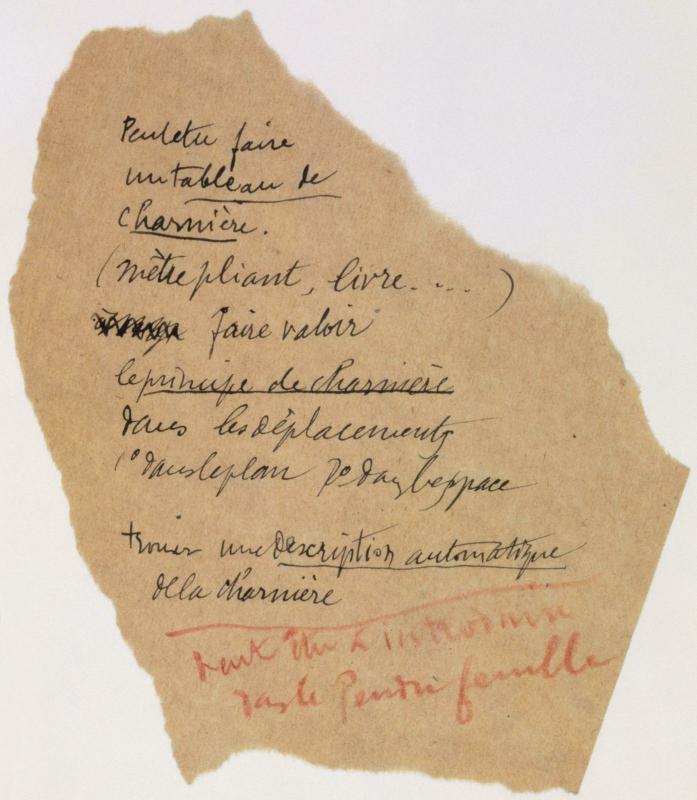 Peut etre faire
un tableau de
Charnière.
(mètre pliant, livre....)
faire valoir
le principe de charnière
dans les déplacements
1° dans le plan 2° dans l'espace
trouver une description automatique
de la charnière
Peut être à introduire
dans le Pendu femelle